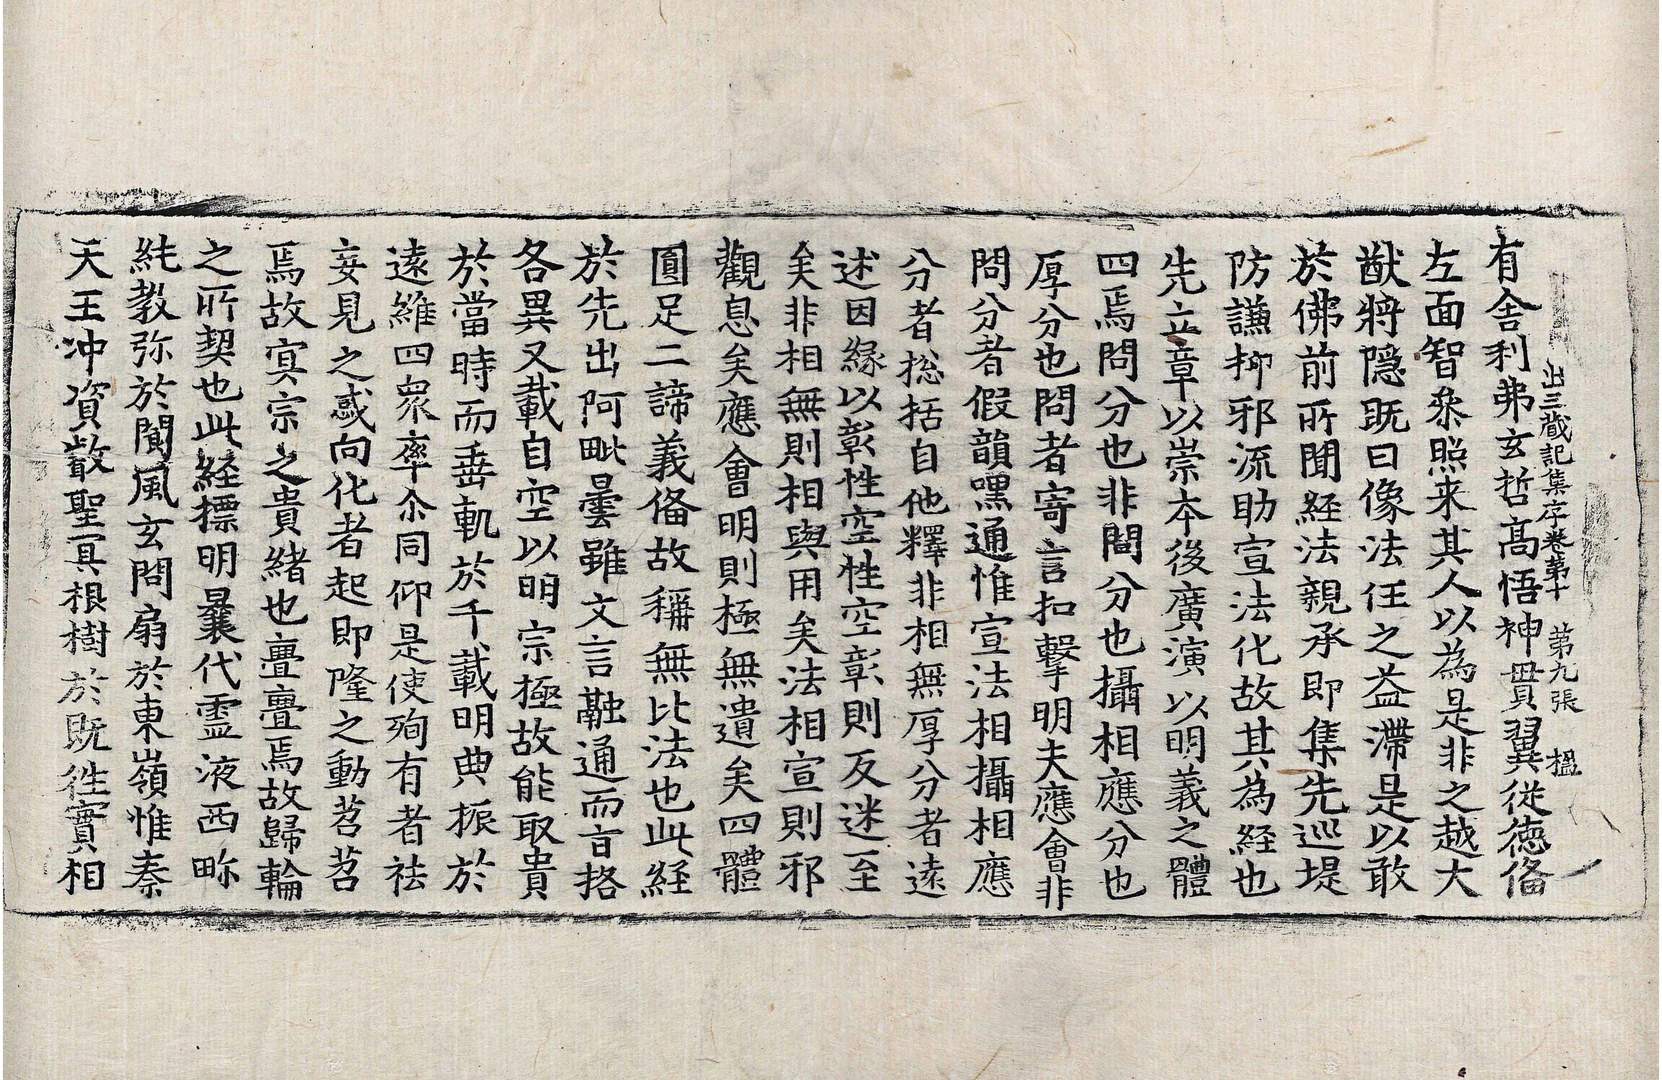 出三藏記集序卷第十 第九張 楹
有舍利弗玄哲高悟神貫翼從德俻
左面智叅照来其人以為是非之越大
猷將隱既曰像法任之益滯是以敢
於佛前所聞経法親承即集先巡堤
防謙抑邪流助宣法化故其為経也
先立章以崇本後廣演以明義之體
四焉問分也非問分也攝相應分也
厚分也問者寄言扣擊明夫應會非
問分者假韻嘿通惟宣法相攝相應
分者捴括自他釋非相無厚分者遠
述因緣以彰性空性空彰則反迷至
矣非相無則相與用矣法相宣則邪
觀息矣應會明則極無遺矣四體
圓足二諦義俻故稱無比法也此経
於先出阿毗曇雖文言融通而旨挌
各異又載自空以明宗極故能取貴
於當時而垂軌於千載明典振於
遠維四衆率尒同仰是使殉有者祛
妄見之惑向化者起即隆之動苕苕
焉故冥宗之貴緒也亹亹焉故歸輪
之所契也此経摽明曩代靈液西畛
純教弥於閬風玄問扇於東嶺惟秦
天王冲資叡聖冥根樹於既徃實相